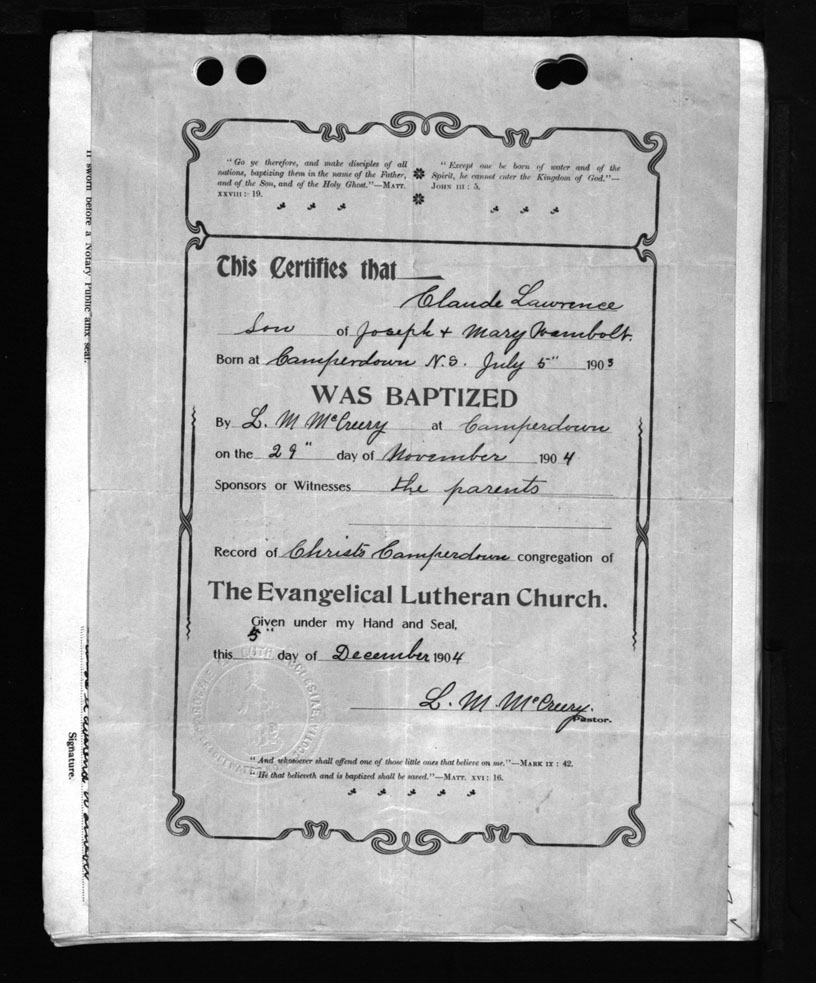 "Go ye therefore, and make disciples of all
nations, baptizing them in the name of the Father,
and of the Son, and of the Holy Ghost."—MATT.
XXVIII: 19.
"Except one be born of water and of the
Spirit, he cannot enter the Kingdom of God."—
JOHN III : 5.
This Certifies that
Claude Lawrence
Son of Joseph + Mary Wambolt.
Born at Camperdown N.S. July 5" 1903
WAS BAPTIZED
By L. M McCreery at Camperdown
on the 29" day of November 1904
Sponsors or Witnesses the parents
Record of Christs Camperdown congregation of
The Evangelical Lutheran Church.
Given under my Hand and Seal,
this 5" day of December 1904
L. M. McCreery.
Pastor.
"And whosoever shall offend one of those little ones that believe on me."—MARK IX : 42.
"He that believeth and is baptized shall be saved."—MATT. XVI : 16.
If sworn before a Notary Public affix seal.
Signature.